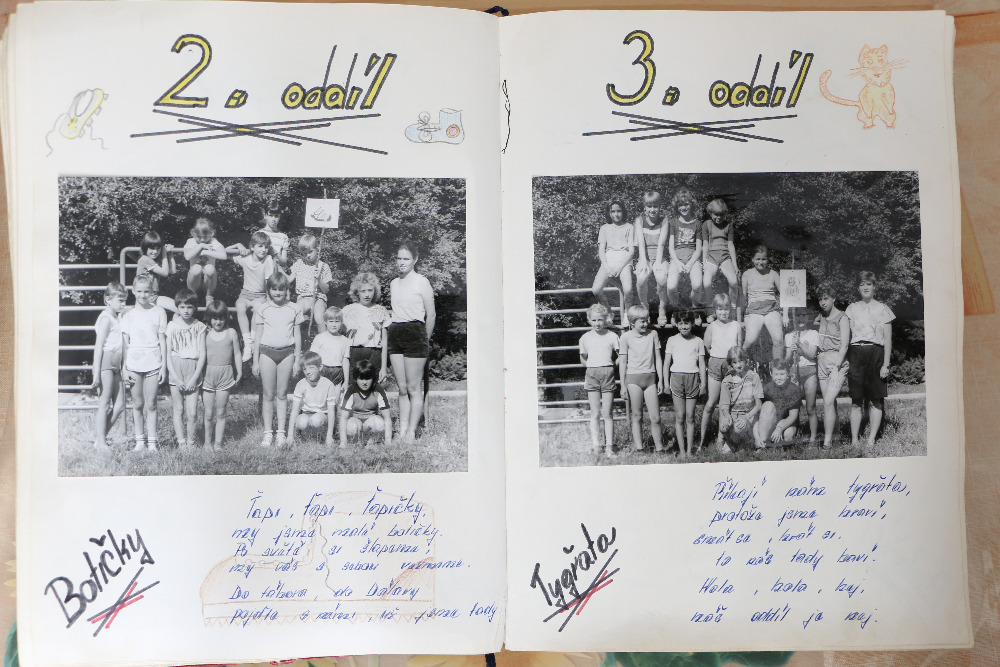 2. oddíl
Botičky
Ťapi, ťapi, ťapičky,
my jsme malé botičky.
Po světě si šlapeme,
my vás s sebou vezmeme.
Do tábora, do
pojďte s námi, už jsme tady
3. oddíl
Tygřata
Říkají nám tygřata,
protože jsme hraví,
smát se, hrát si,
to nás tady baví.
Hola, hola, hej,
náš oddíl je nej.